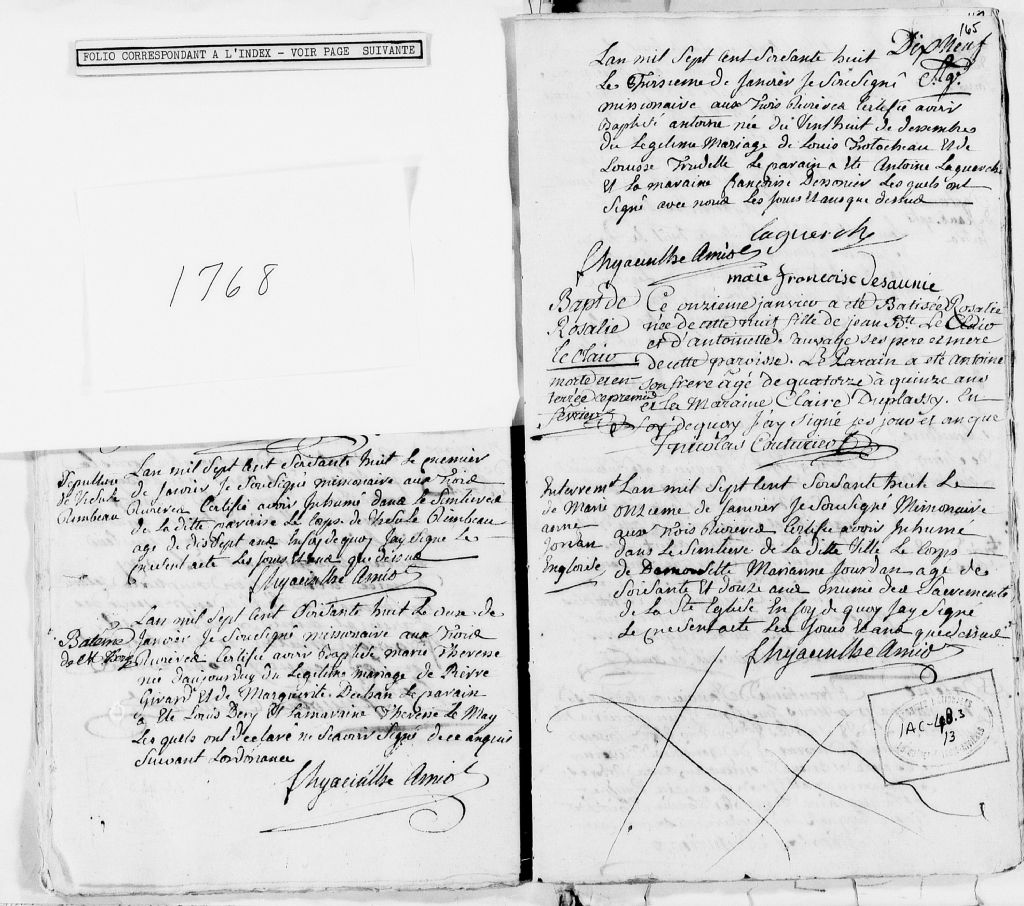 FOLIO CORRESPONDANT A L'INDEX - VOIR PAGE SUIVANTE
1768
Sepulture
de
Rimbeau
Lan mil Sept Cent Soixante huit Le premier
de Janvier Je Sousigné missionaire aux Trois
Rivieres Certifié avoir Inhumé dans le Simtierea
de la ditte paroisse Le Corps de Rimbeau
age de dissept ans En foy de quoy Jay Signé Le
present acte Les Jours et ans que dessus
f hyacinthe Amiot
Bateme
de
Lan mil Sept Cent Soixante huit Le onze de
Janvier Je Sousigné missionaire aux Trois
Rivieres Certifié avoir Baptisé marie Therese
née daujourduy du Legitime mariage de Pierre
Girard Et de Marguerite Dechau Le parain
a Eté Louis Dery Et la maraine Therese Le May
Lesquels ont declaré ne Scavoir Signé de ce anquis
Suivant Lordonance
f hyacinthe Amiot
165
Dix Neuf
Lan mil Sept Cent Soixante huit
Le Troisieme de Janvier Je Sousigné
missionaire aux Trois Rivieres Certifié avoir
Baptisé antoine née du Vint huit de dessembre
du Legitime Mariage de Louis Trotocheau Et de
Trudelle Le parain a Eté Antoine Laguerche
Et La maraine françoise Desonier Les quels ont
Signé avec nous Les Jours Et ans que dessus
laguerche
f hyacinthe Amiot
marie francoise desaunie
Bapt de
Rosalie
le Clair
morte et en-
terrée ce premier
février
Ce onzieme janvier a eté Batisée Rosalie
née de cette nuit fille de jean Bte Le Clair
et d'antoinette Sauvage ses pere et mere
de cette paroisse. Le Parain a eté Antoine
son frere âgé de quatorze à quinze ans
et la Maraine Claire Duplassy. En
foy de quoy J'ay Signé ses jour et an que
f nicolas Couturier
Enterremt
de Marie
anne
Jordan
Engloise
Lan mil Sept Cent Soixante huit Le
onzieme de Janvier Je Sousigné Missionaire
aux Trois Rivieres Certifie avoir Inhumé
dans le Simtiere de La ditte Ville Le Corps
de Damoiselle Marianne Jourdan age de
Soixante Et douze ans munie des Sacrements
de la Ste Eglise En foy de quoy Jay Signé
Le present acte Les Jours et ans que dessus
f hyacinthe Amiot
IAC-48.3
13